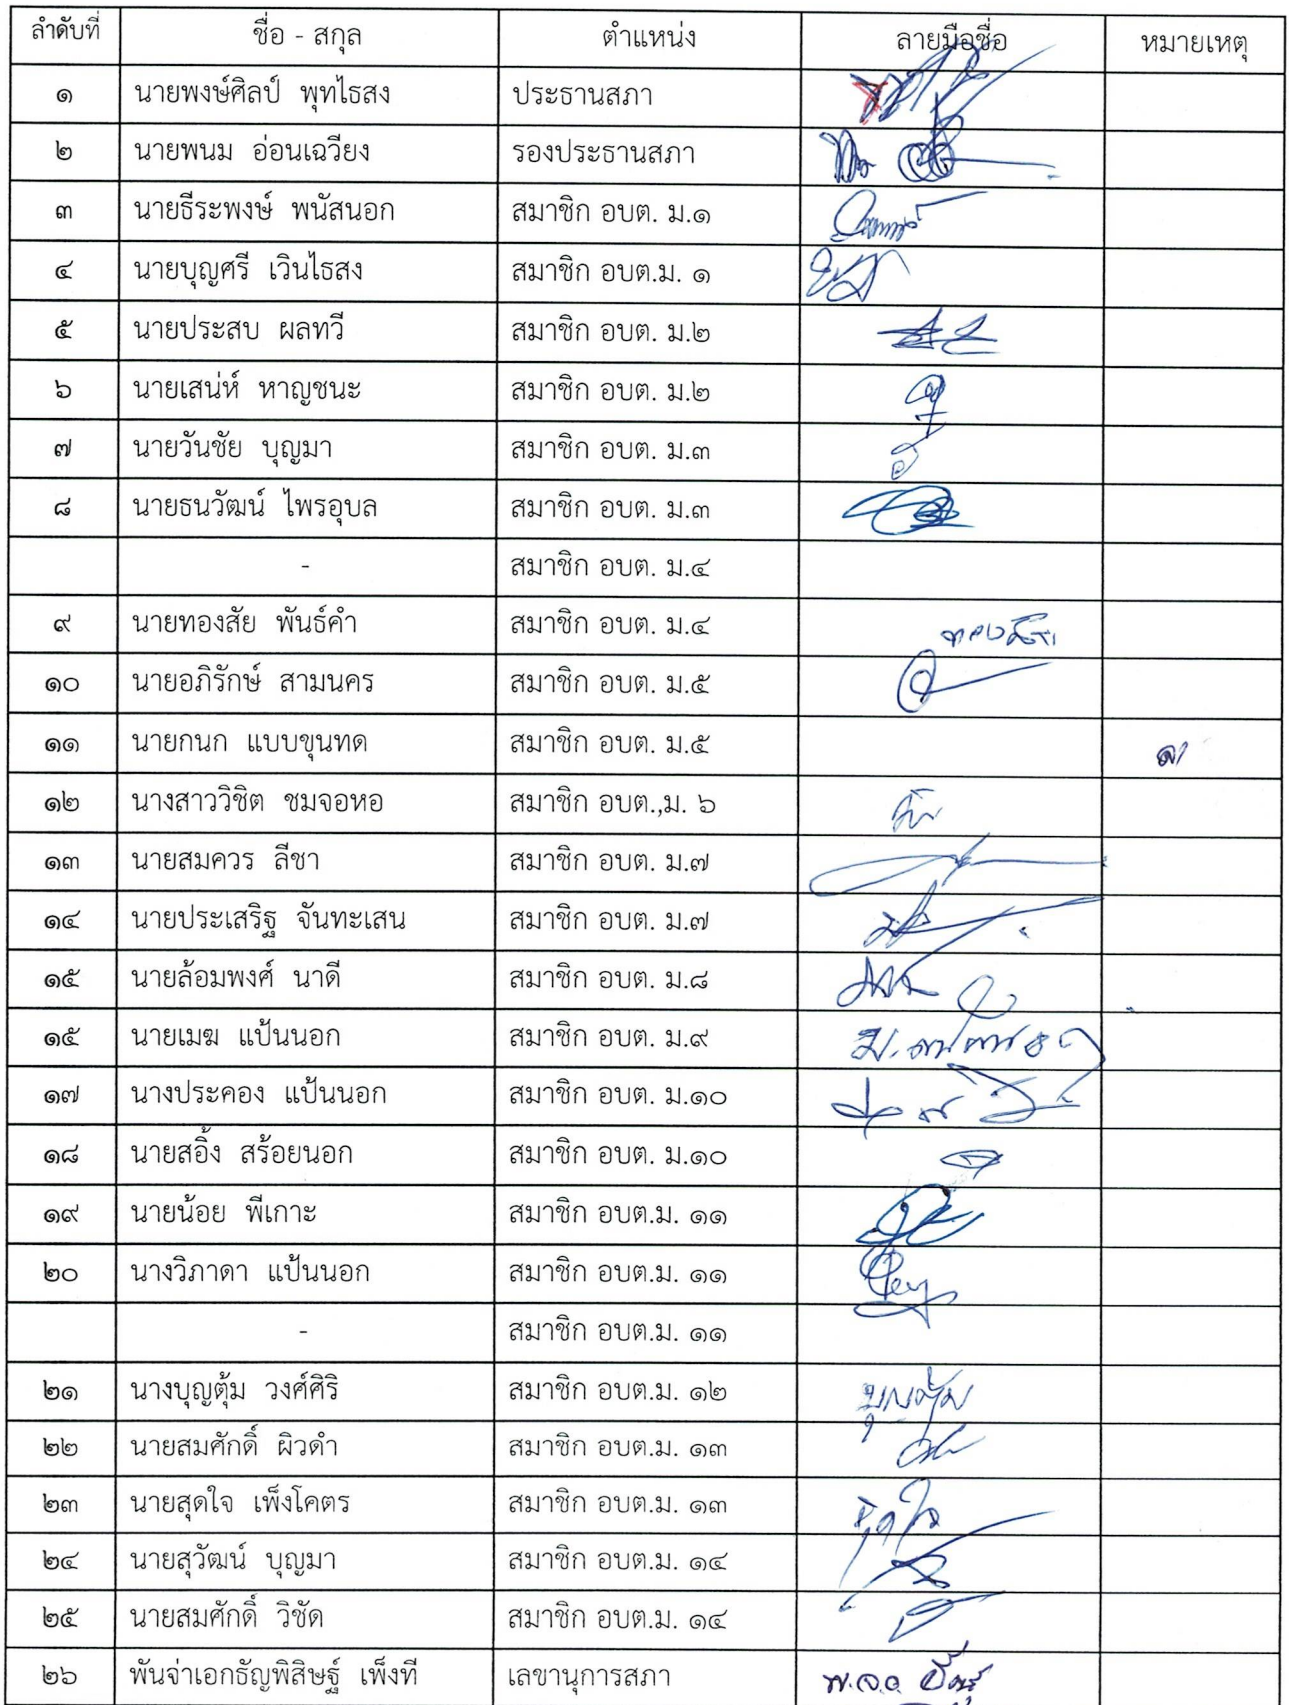 ลำดับที่ ชื่อ - สกุล ตำแหน่ง ลายมือชื่อ หมายเหตุ
๑ นายพงษ์ศิลป์ พุทไธสง ประธานสภา
๒ นายพนม อ่อนเฉวียง รองประธานสภา
๓ นายธีระพงษ์ พนัสนอก สมาชิก อบต. ม.๑
๔ นายบุญศรี เวินไธสง สมาชิก อบต.ม. ๑
๕ นายประสบ ผลทวี สมาชิก อบต. ม.๒
๖ นายเสน่ห์ หาญชนะ สมาชิก อบต. ม.๒
๗ นายวันชัย บุญมา สมาชิก อบต. ม.๓
๘ นายธนวัฒน์ ไพรอุบล สมาชิก อบต. ม.๓
- สมาชิก อบต. ม.๔
๙ นายทองสัย พันธ์คำ สมาชิก อบต. ม.๔
๑๐ นายอภิรักษ์ สามนคร สมาชิก อบต. ม.๕
๑๑ นายกนก แบบขุนทด สมาชิก อบต. ม.๕ ลา
๑๒ นางสาววิชิต ชมจอหอ สมาชิก อบต.,ม. ๖
๑๓ นายสมควร ลีชา สมาชิก อบต. ม.๗
๑๔ นายประเสริฐ จันทะเสน สมาชิก อบต. ม.๗
๑๕ นายล้อมพงศ์ นาดี สมาชิก อบต. ม.๘
๑๕ นายเมฆ แป้นนอก สมาชิก อบต. ม.๙
๑๗ นางประคอง แป้นนอก สมาชิก อบต. ม.๑๐
๑๘ นายสอิ้ง สร้อยนอก สมาชิก อบต. ม.๑๐
๑๙ นายน้อย พีเกาะ สมาชิก อบต.ม. ๑๑
๒๐ นางวิภาดา แป้นนอก สมาชิก อบต.ม. ๑๑
- สมาชิก อบต.ม. ๑๑
๒๑ นางบุญตุ้ม วงศ์ศิริ สมาชิก อบต.ม. ๑๒ บุญตุ้ม
๒๒ นายสมศักดิ์ ผิวดำ สมาชิก อบต.ม. ๑๓
๒๓ นายสุดใจ เพ็งโคตร สมาชิก อบต.ม. ๑๓ สุดใจ
๒๔ นายสุวัฒน์ บุญมา สมาชิก อบต.ม. ๑๔
๒๕ นายสมศักดิ์ วิชัด สมาชิก อบต.ม. ๑๔
๒๖ พันจ่าเอกธัญพิสิษฐ์ เพ็งที เลขานุการสภา พ.จ.อ.